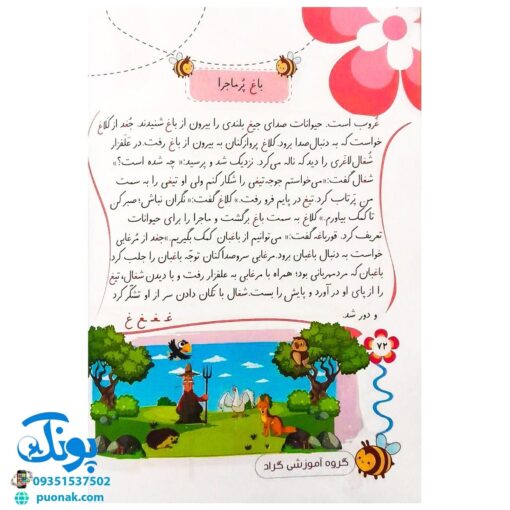 باغ پُرماجرا
غروب است. حیوانات صدای جیغ بلندی را بیرون از باغ شنیدند. جُغد از کلاغ
خواست که به دنبال صدا برود. کلاغ پروازکنان به بیرون از باغ رفت. در عَلَفزار
شُغال لاغری را دید که ناله می‌کرد. نزدیک شد و پرسید:« چه شده است؟»
شغال گفت:«می‌خواستم جوجه‌تیغی را شکار کنم ولی او تیغی را به سمت
من پَرتاب کرد. تیغ در پایم فرو رفت.» کلاغ گفت:« نگران نباش؛ صبر کن
تا کمک بیاورم.» کلاغ به سمت باغ برگشت و ماجرا را برای حیوانات
تعریف کرد. قورباغه گفت:« می‌توانیم از باغبان کمک بگیریم.»جغد از مُرغابی
خواست به دنبال باغبان برود. مرغابی سروصداکنان توجّه باغبان را جلب کرد.
باغبان که مرد مهربانی بود؛ همراه با مرغابی به علفزار رفت و با دیدن شغال، تیغ
را از پای او در آورد و پایش را بست. شغال با تکان دادن سر از او تشکّر کرد
و دور شد.
غـ ـغـ ـغ غ
۷۲
گروه آموزشی گراد
پونک
09351537502
puonak.com